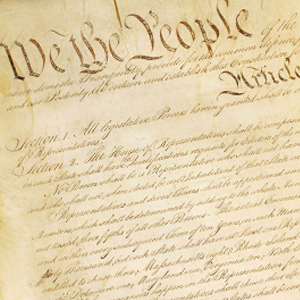 We the People
insure domestic Tranquility, provide for the common defence,
and our Posterity, do ordain and establish this Constitution
Article
Section. 1. All legislative Powers herein granted shall be
of Representatives.
Section. 2. The House of Representatives shall be composed
in each State shall have Qualifications requisite for Electors of the
No Person shall be a Representative who shall not have
and who shall not, when elected, be an Inhabitant of that State in
Representatives and direct Taxes shall be apportioned among
Numbers, which shall be determined by adding to the whole Number
and three fifths of all other Persons. The actual Enumeration
and within every subsequent Term of ten Years, in such Manner
thirty Thousand, but each State shall have at Least one
entitled to chuse three, Massachusetts eight, Rhode Island
Delaware one, Maryland six, Virginia ten, North